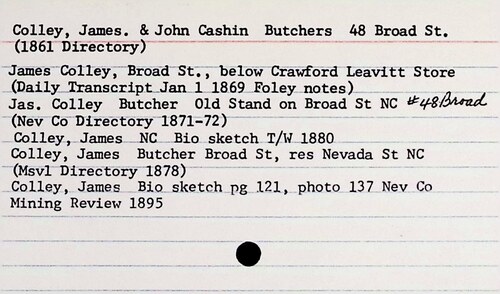 Colley, James. & John Cashin Butchers 48 Broad St.
(1861 Directory)
James Colley, Broad St., below Crawford Leavitt Store
(Daily Transcript Jan 1 1869 Foley notes)
Jas. Colley Butcher Old Stand on Broad St NC #48 Broad
(Nev Co Directory 1871-72)
Colley, James NC Bio sketch T/W 1880
Colley, James Butcher Broad St, res Nevada St NC
(Msvl Directory 1878)
Colley, James Bio sketch pg 121, photo 137 Nev Co
Mining Review 1895